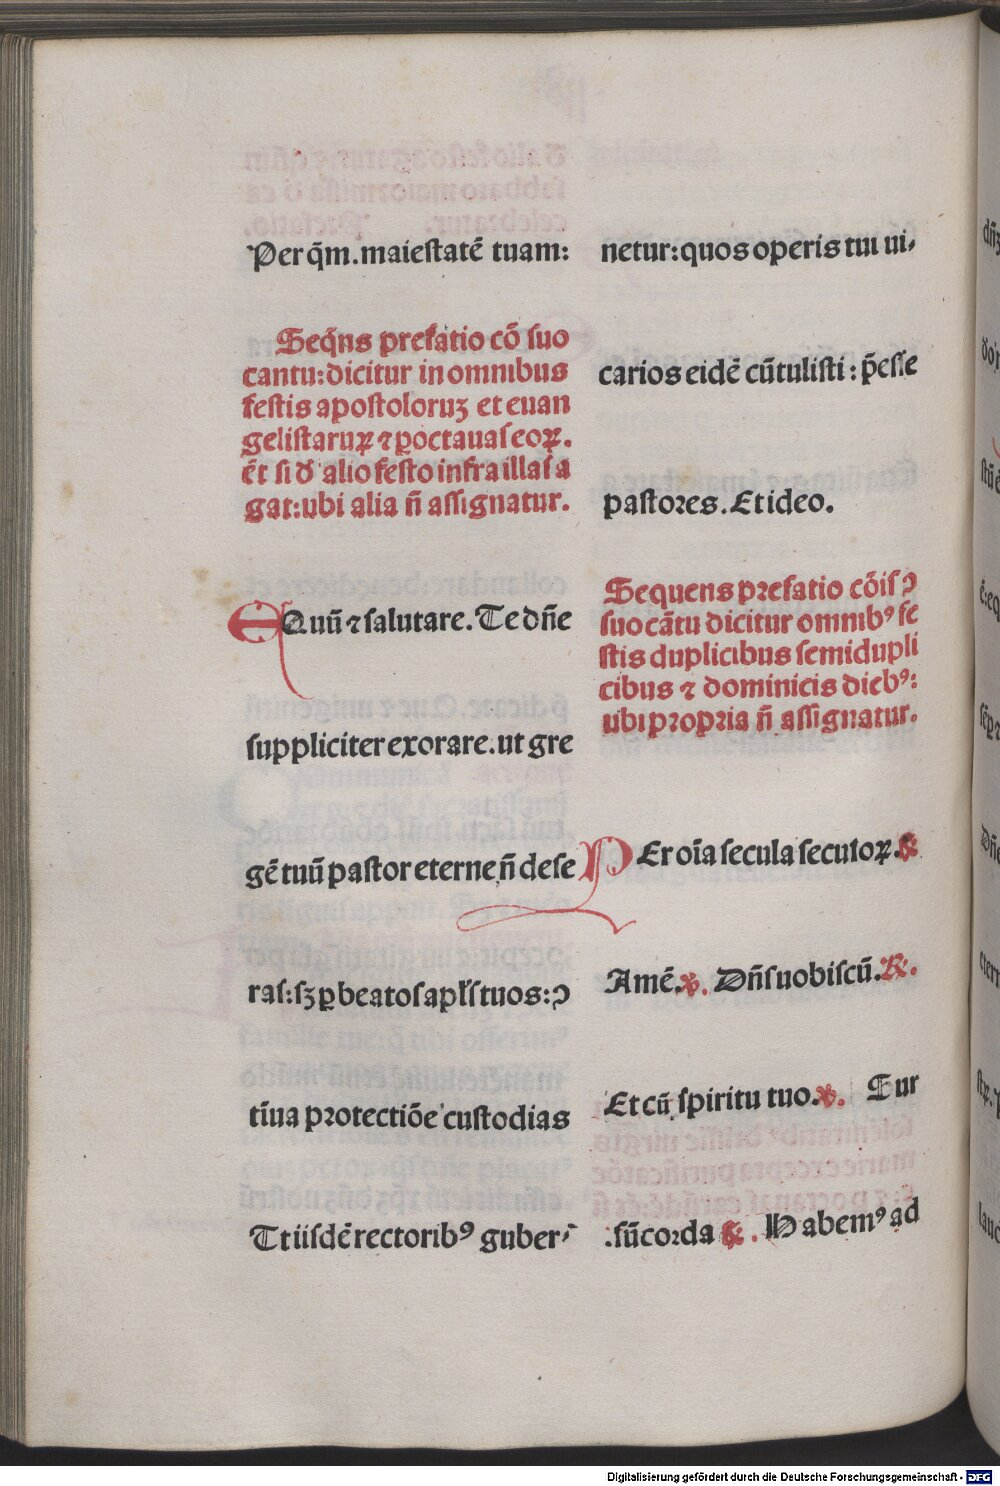 Per q̄m. maiestatē tuam:
Seq̄ns prefatio cō suo
cantu: dicitur in omnibus
festis apostoloruꝫ et euan
gelistaruꝝ ⁊ ꝑ octauas eoꝝ.
et̄ si đ alio festo infra illas a
gat: ubi alia n̄ assignatur.
EQuū ⁊ salutare. Te dn̄e
suppliciter exorare. ut gre
gē tuū pastor eterne, n̄ dese
ras: sꝫ ꝑ beatos apl̄s tuos: ↄ
tīua protectiōe custodias
Tt iisdē rectoribꝰ guber⸗
netur: quos operis tui ui⸗
carios eidē cū tulisti: p̄esse
pastores. Et ideo.
Sequens prefatio cōis ↄ
suo cātu dicitur omnibꝰ fe
stis duplicibus semidupli
cibus ⁊ dominicis diebꝰ:
ubi propria n̄ assignatur.
PEr oīa secula seculoꝝ. ℟
Amē. ℣. Dn̄s uobiscū. ℟.
Et cū spiritu tuo. ℣. Sur
sū corda ℟. Habemꝰ ad
Digitalisierung gefördert durch die Deutsche Forschungsgemeinschaft - DFG